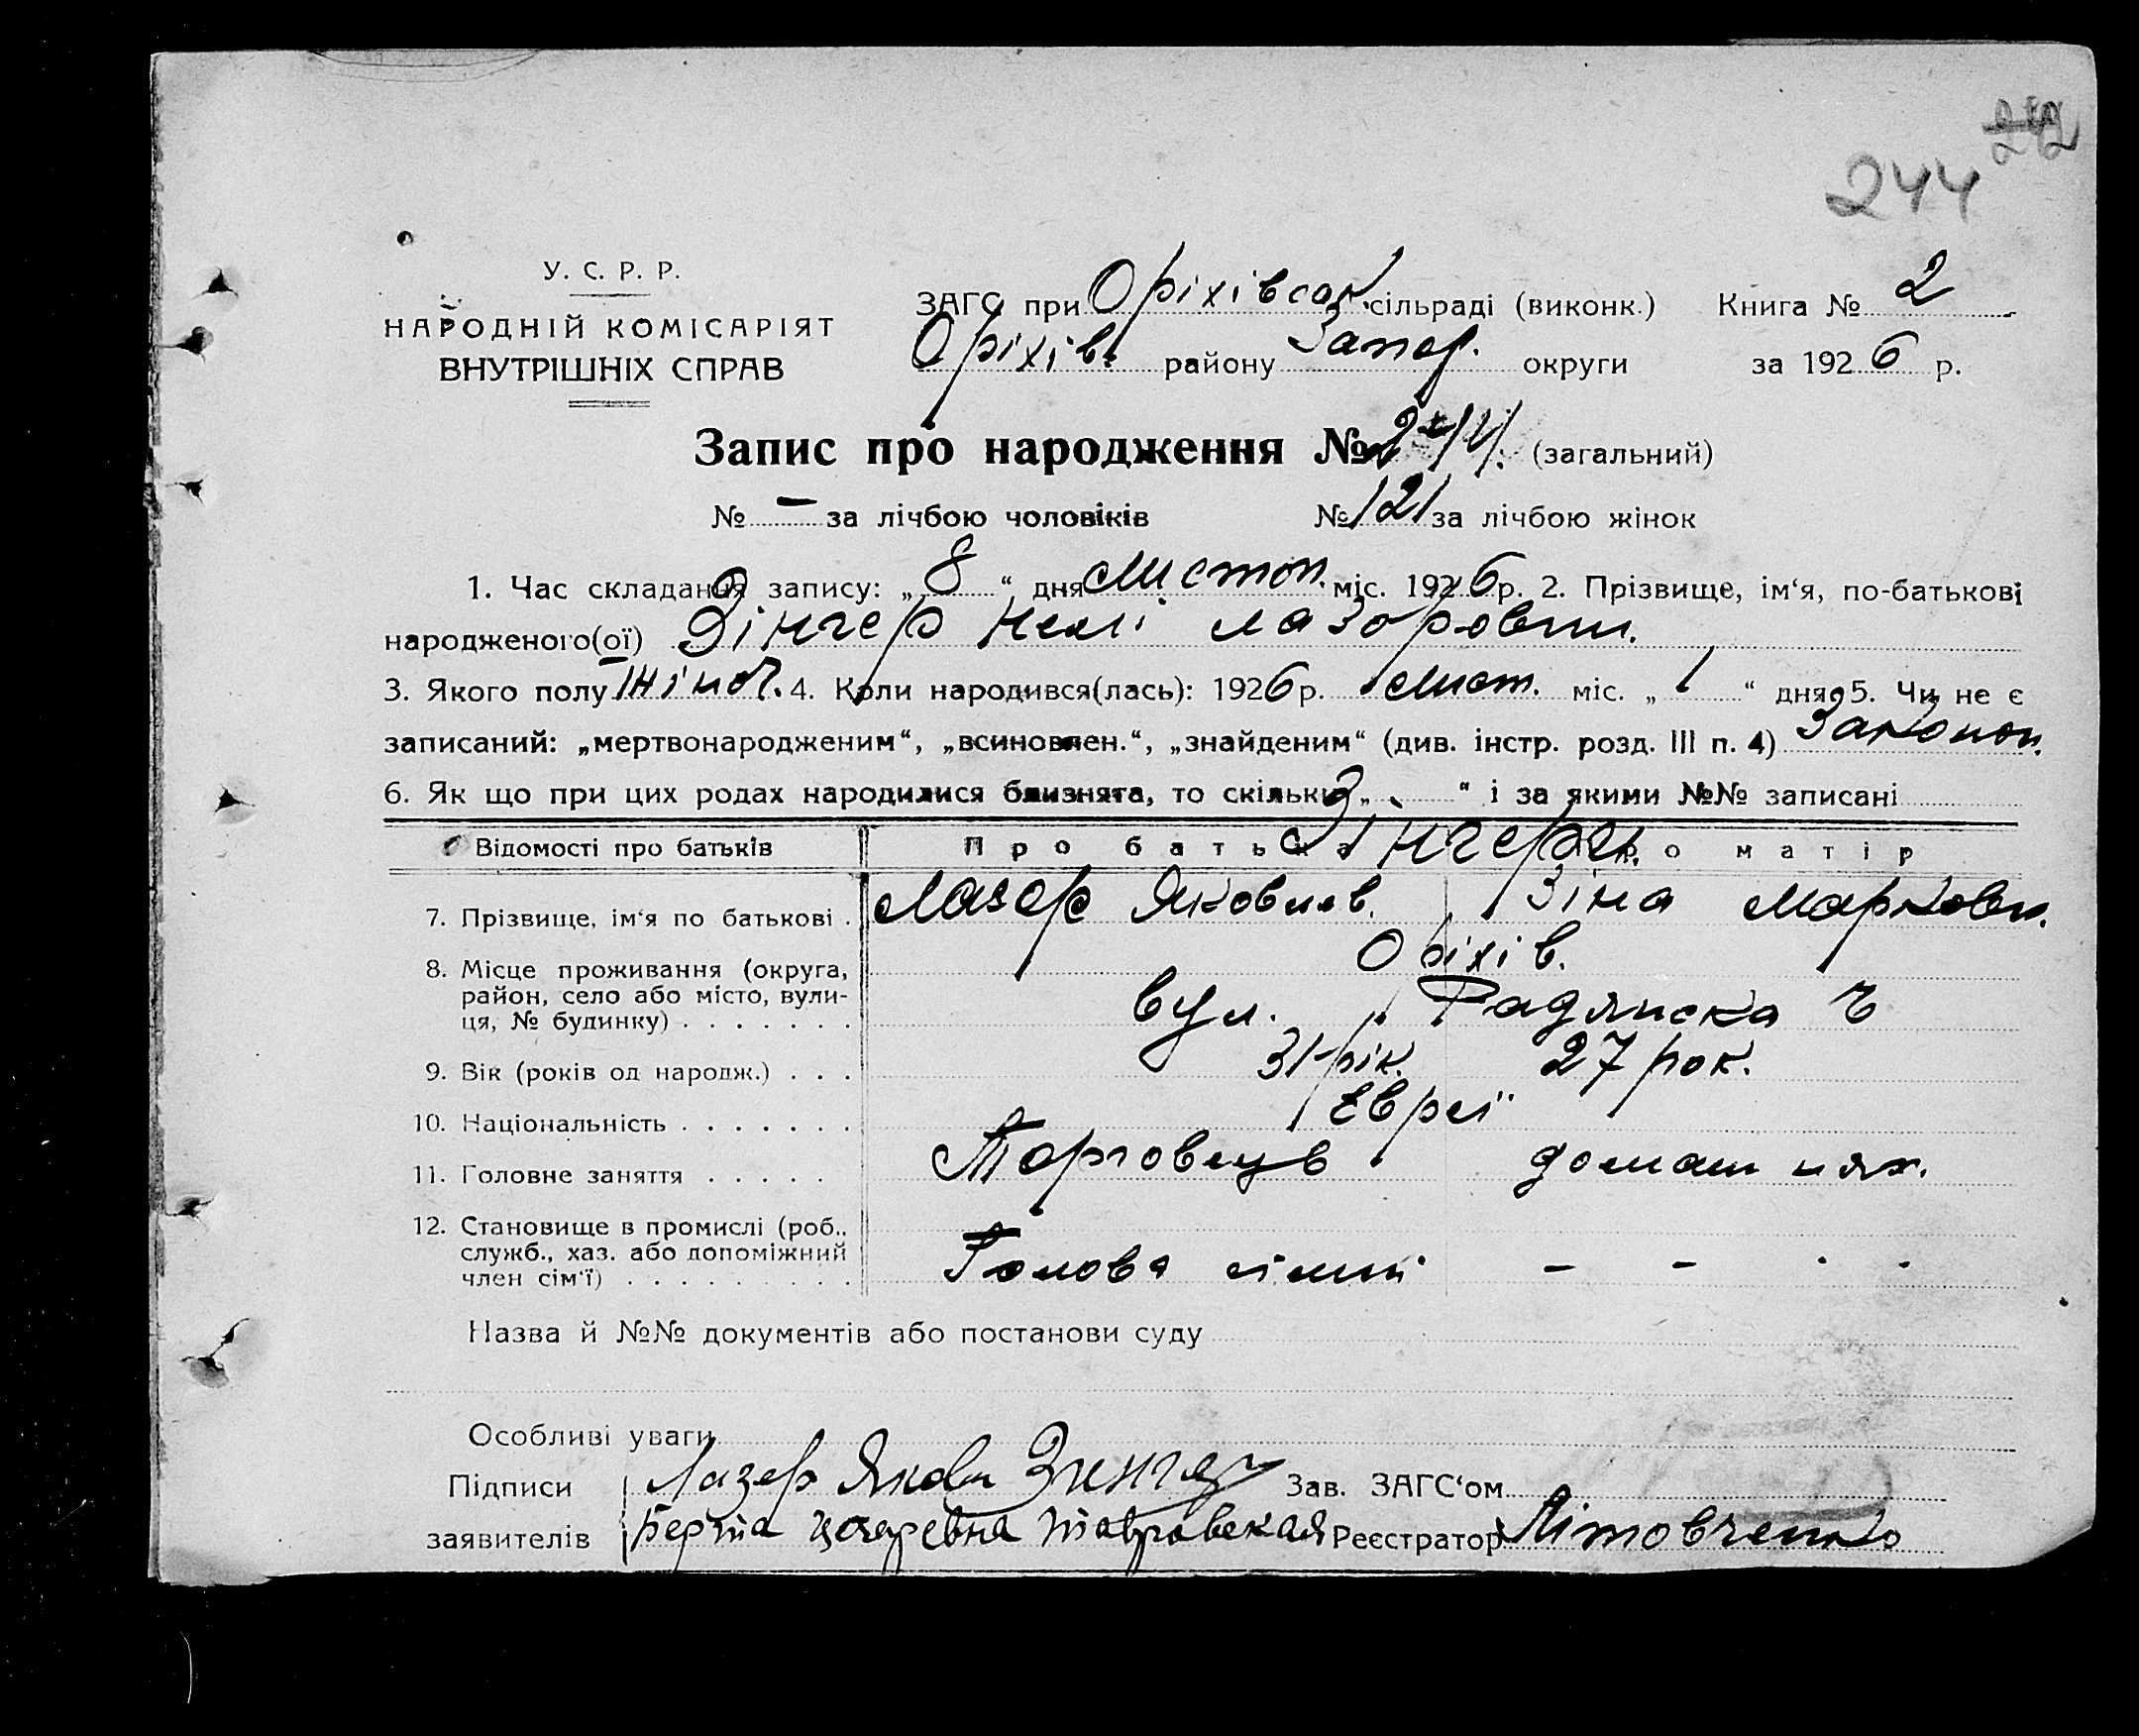 244
У. С. Р. Р.
НАРОДНІЙ КОМІСАРІЯТ
ВНУТРІШНІХ СПРАВ
ЗАГС при Оріхівськ. сільраді (виконк.) Книга № 2
Оріхів. району Запор. округи за 1926 р.
Запис про народження № 244. (загальний)
№ — за лічбою чоловіків № 121 за лічбою жінок
1. Час складання запису: „8“ дня Листоп. міс. 1926 р. 2. Прізвище, ім‘я, по-батькові
народженого(ої) Зінгер Нелі Лазоровни.
3. Якого полу Жіноч. 4. Коли народився(лась): 1926 р. Лист. міс. „1“ дня 5. Чи не є
записаний: „мертвонародженим“, „всиновлен.“, „знайденим“ (див. інстр. розд. III п. 4) Законон.
6. Як що при цих родах народилися близнята, то скільки „ “ і за якими №№ записані
Відомості про батьків Про батька Про матір
Зінгери.
7. Прізвище, ім‘я по батькові . Лазер Яковлев. Зіна Марковн.
8. Місце проживання (округа, район, село або місто, вули-ця, № будинку) . . . . . . . Оріхів.
вул. Радянска
9. Вік (років од народж.) . . . 31 рік. 27 рок.
10. Національність . . . . . . . Євреї
11. Головне заняття . . . . . Торговець домашнях.
12. Становище в промислі (роб., служб., хаз. або допоміжний член сім‘ї) . . . . . . . . . Голова сімї - - - -
Назва й №№ документів або постанови суду
Особливі уваги
Підписи Лазер Яковл Зингер Зав. ЗАГС‘ом
заявителів Берта Тавровская Реєстратор Літовченко